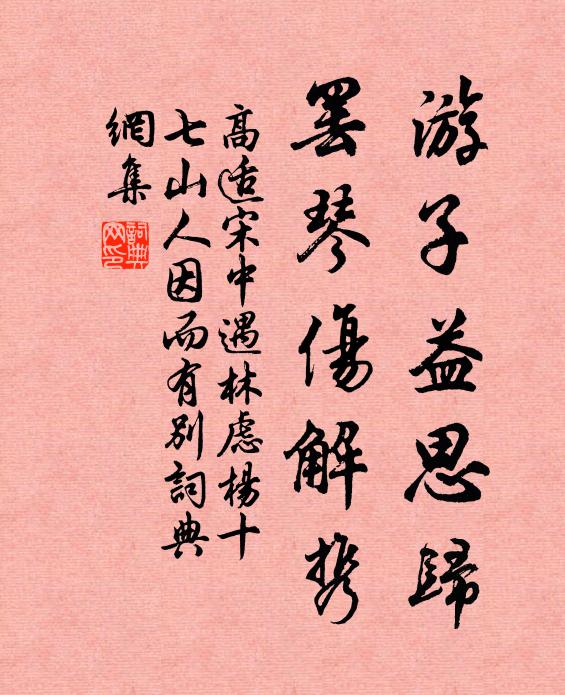 游子益思歸
罢琴傷解携
高适宋中遇林慮楊十
七山人因而有别詞典
網集
詞典
网印